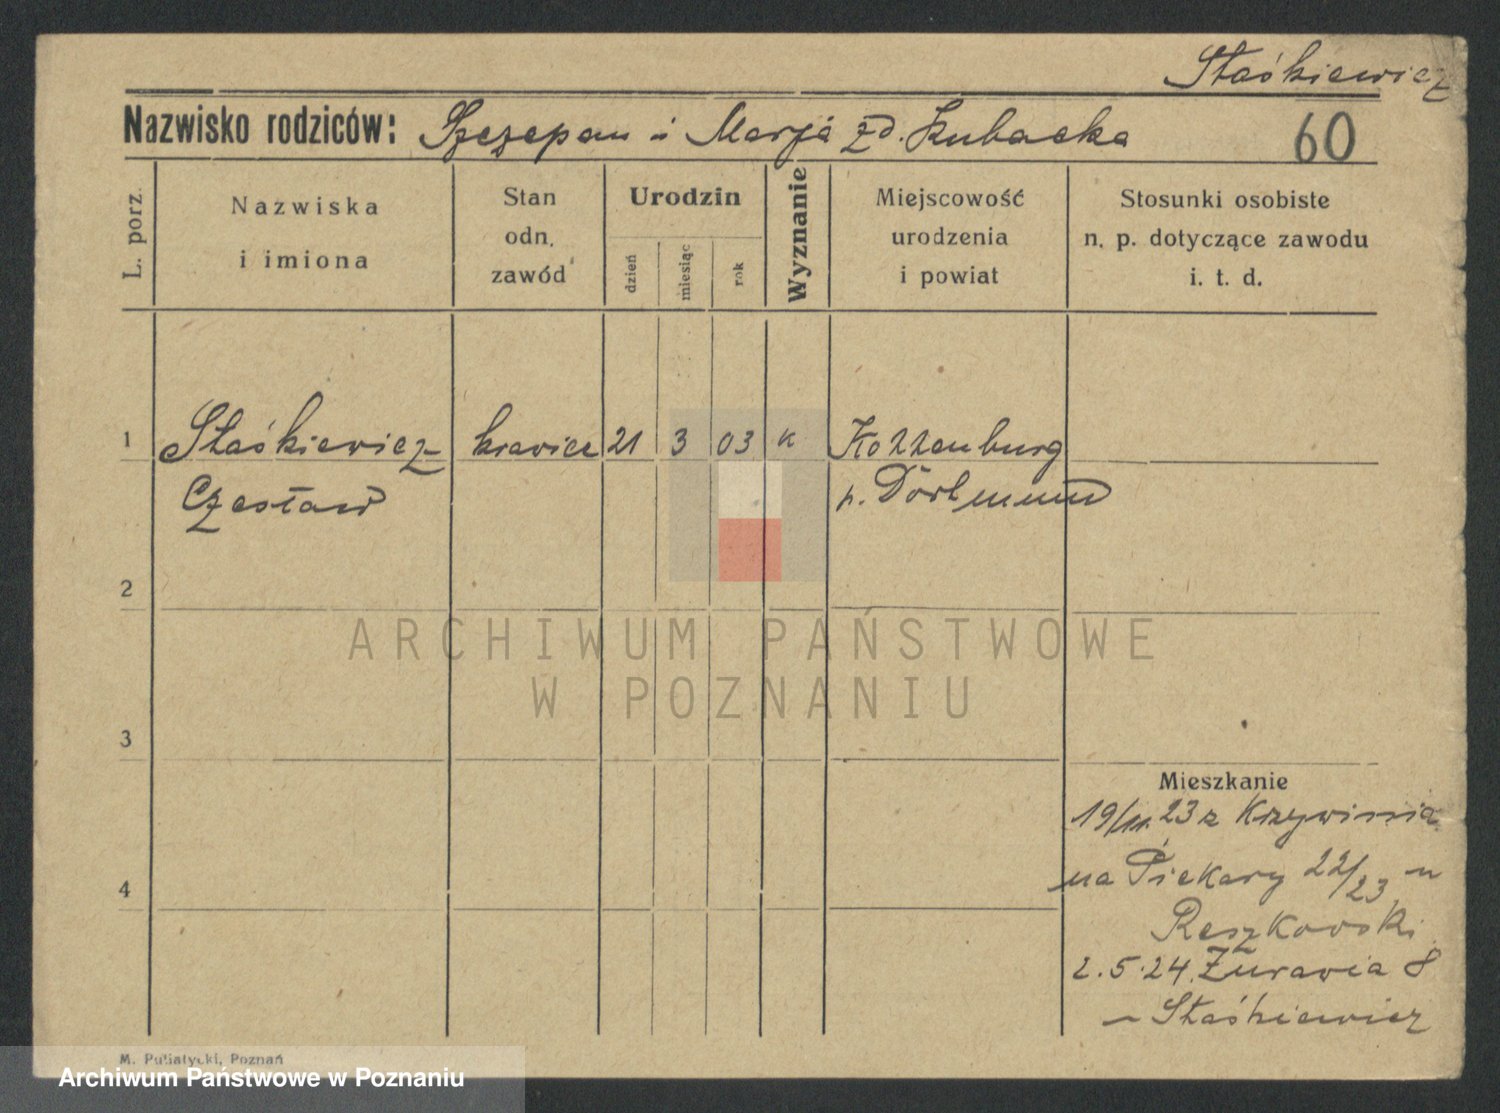 Staśkiewicz
Nazwisko rodziców: Szczepan i Marja zd. Kubacka
60
L. porz.
Nazwiska
i imiona
Stan
odn.
zawód
Urodzin
dzień
miesiąc
rok
Wyznanie
Miejscowość
urodzenia
i powiat
Stosunki osobiste
n. p. dotyczące zawodu
i. t. d.
1 Staśkiewicz krawiec 21 3 03 k
Czesław p. Dortmund
2
ARCHIWUM PAŃSTWOWE
W POZNANIU
3
Mieszkanie
23 z Krzywinia
4
na Piekary 22/23 u
Reszkowski
2.5.24. Żurawia 8
- Staśkiewicz
M. Putiatycki, Poznań
Archiwum Państwowe w Poznaniu